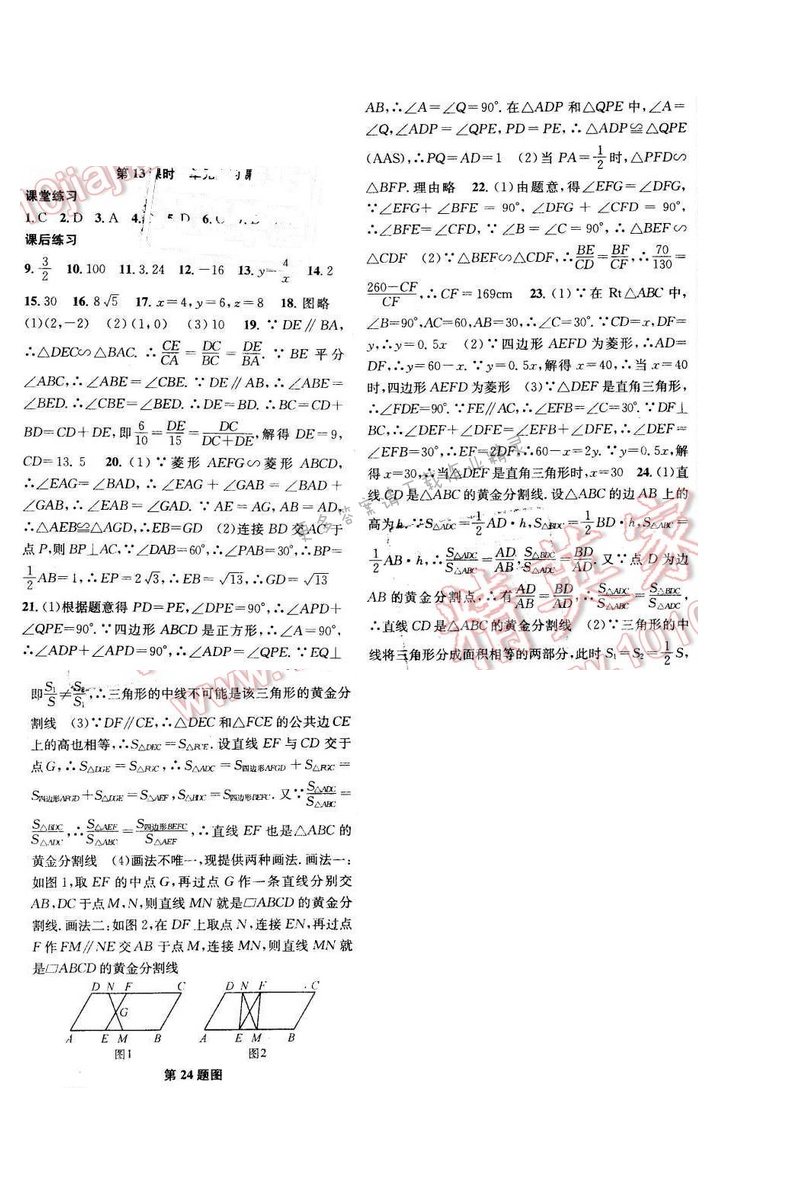 第13课时 单元
课堂练习
1.C 2.D 3.A 4. 5.D 6.
课后练习
9. 3/2 10.100 11.3.24 12.－16 13.y＝4/x 14.2
15.30 16.8√5 17.x＝4,y＝6,z＝8 18.图略
(1)(2,－2) (2)(1,0) (3)10 19.∵DE∥BA,
∴△DEC∽△BAC.∴CE/CA＝DC/BC＝DE/BA.∵BE平分
∠ABC,∴∠ABE＝∠CBE.∵DE∥AB,∴∠ABE＝
∠BED.∴∠CBE＝∠BED.∴DE＝BD.∴BC＝CD＋
BD＝CD＋DE,即6/10＝DE/15＝DC/(DC＋DE),解得DE＝9,
CD＝13.5 20.(1)∵菱形AEFG∽菱形ABCD,
∴∠EAG＝∠BAD,∴∠EAG＋∠GAB＝∠BAD＋
∠GAB,∴∠EAB＝∠GAD.∵AE＝AG,AB＝AD,
∴△AEB≌△AGD,∴EB＝GD (2)连接BD交AC于
点P,则BP⊥AC,∵∠DAB＝60°,∴∠PAB＝30°,∴BP＝
1/2AB＝1,∴EP＝2√3,∴EB＝√13,∴GD＝√13
21.(1)根据题意得PD＝PE,∠DPE＝90°,∴∠APD＋
∠QPE＝90°.∵四边形ABCD是正方形,∴∠A＝90°,
∴∠ADP＋∠APD＝90°,∴∠ADP＝∠QPE.∵EQ⊥
AB,∴∠A＝∠Q＝90°.在△ADP和△QPE中,∠A＝
∠Q,∠ADP＝∠QPE,PD＝PE,∴△ADP≌△QPE
(AAS),∴PQ＝AD＝1 (2)当PA＝1/2时,△PFD∽
△BFP.理由略 22.(1)由题意,得∠EFG＝∠DFG,
∵∠EFG＋∠BFE＝90°,∠DFG＋∠CFD＝90°,
∴∠BFE＝∠CFD,∵∠B＝∠C＝90°,∴△BEF∽
△CDF (2)∵△BEF∽△CDF,∴BE/CD＝BF/CF,∴70/130＝
(260－CF)/CF,∴CF＝169cm 23.(1)∵在Rt△ABC中,
∠B＝90°,AC＝60,AB＝30,∴∠C＝30°.∵CD＝x,DF＝
y,∴y＝0.5x (2)∵四边形AEFD为菱形,∴AD＝
DF,∴y＝60－x.∵y＝0.5x,解得x＝40,∴当x＝40
时,四边形AEFD为菱形 (3)∵△DEF是直角三角形,
∴∠FDE＝90°.∵FE∥AC,∴∠EFB＝∠C＝30°.∵DF⊥
BC,∴∠DEF＋∠DFE＝∠EFB＋∠DFE,∴∠DEF＝
∠EFB＝30°,∴EF＝2DF,∴60－x＝2y.∵y＝0.5x,解
得x＝30,∴当△DEF是直角三角形时,x＝30 24.(1)直
线CD是△ABC的黄金分割线.设△ABC的边AB上的
高为h.∵S△ADC＝1/2AD·h,S△BDC＝1/2BD·h,S△ABC＝
1/2AB·h,∴S△ADC/S△ABC＝AD/AB,S△BDC/S△ADC＝BD/AD.又∵点D为边
AB的黄金分割点,∴有AD/AB＝BD/AD,∴S△ADC/S△ABC＝S△BDC/S△ADC,
∴直线CD是△ABC的黄金分割线 (2)∵三角形的中
线将三角形分成面积相等的两部分,此时S₁＝S₂＝1/2S,
即S₁/S≠S₂/S₁,∴三角形的中线不可能是该三角形的黄金分
割线 (3)∵DF∥CE,∴△DEC和△FCE的公共边CE
上的高也相等,∴S△DEC＝S△FCE.设直线EF与CD交于
点G,∴S△DGE＝S△FGC,∴S△ADC＝S四边形AFGD＋S△FGC＝
S四边形AFGD＋S△DGE＝S△AEF,S△BDC＝S四边形BEFC.又∵S△ADC/S△ABC＝
S△BDC/S△ADC,∴S△AEF/S△ABC＝S四边形BEFC/S△AEF,∴直线EF也是△ABC的
黄金分割线 (4)画法不唯一,现提供两种画法.画法一:
如图1,取EF的中点G,再过点G作一条直线分别交
AB,DC于点M,N,则直线MN就是□ABCD的黄金分
割线.画法二:如图2,在DF上取点N,连接EN,再过点
F作FM∥NE交AB于点M,连接MN,则直线MN就
是□ABCD的黄金分割线
D N F C
G
A E M B
图1
D N F C
A E M B
图2
第24题图
更多答案请下载作业精灵
精英家